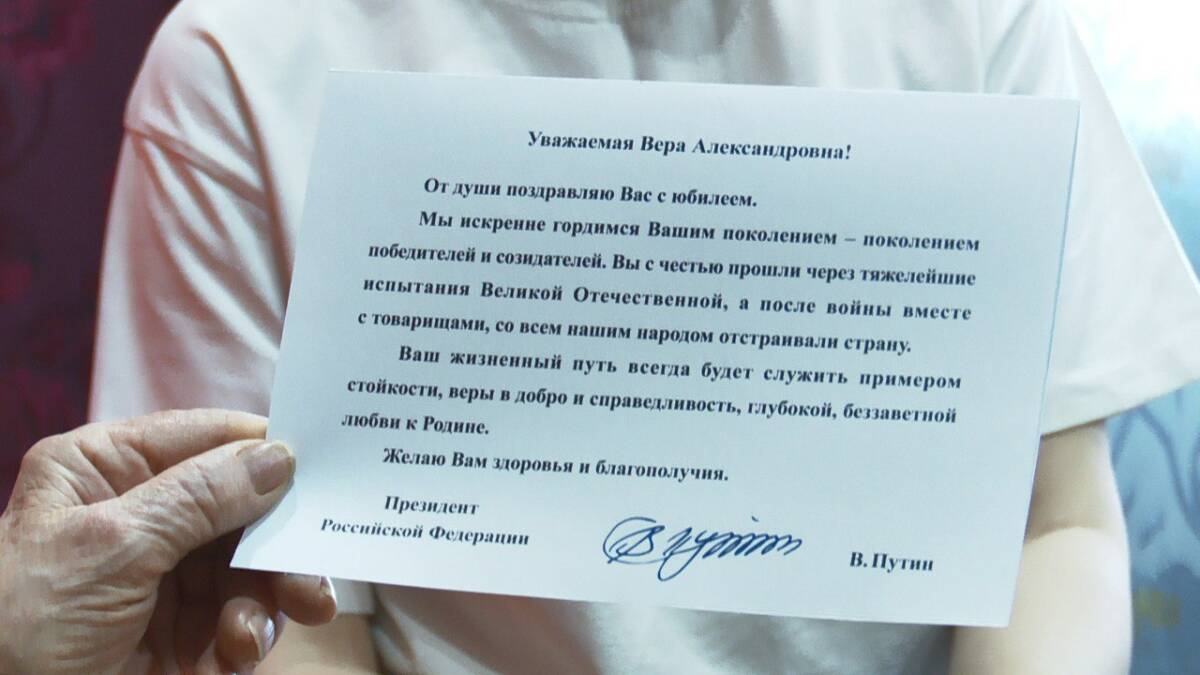 Уважаемая Вера Александровна!
От души поздравляю Вас с юбилеем.
Мы искренне гордимся Вашим поколением – поколением
победителей и созидателей. Вы с честью прошли через тяжелейшие
испытания Великой Отечественной, а после войны вместе
с товарищами, со всем нашим народом отстраивали страну.
Ваш жизненный путь всегда будет служить примером
стойкости, веры в добро и справедливость, глубокой, беззаветной
любви к Родине.
Желаю Вам здоровья и благополучия.
Президент
Российской Федерации
В. Путин
В. Путин